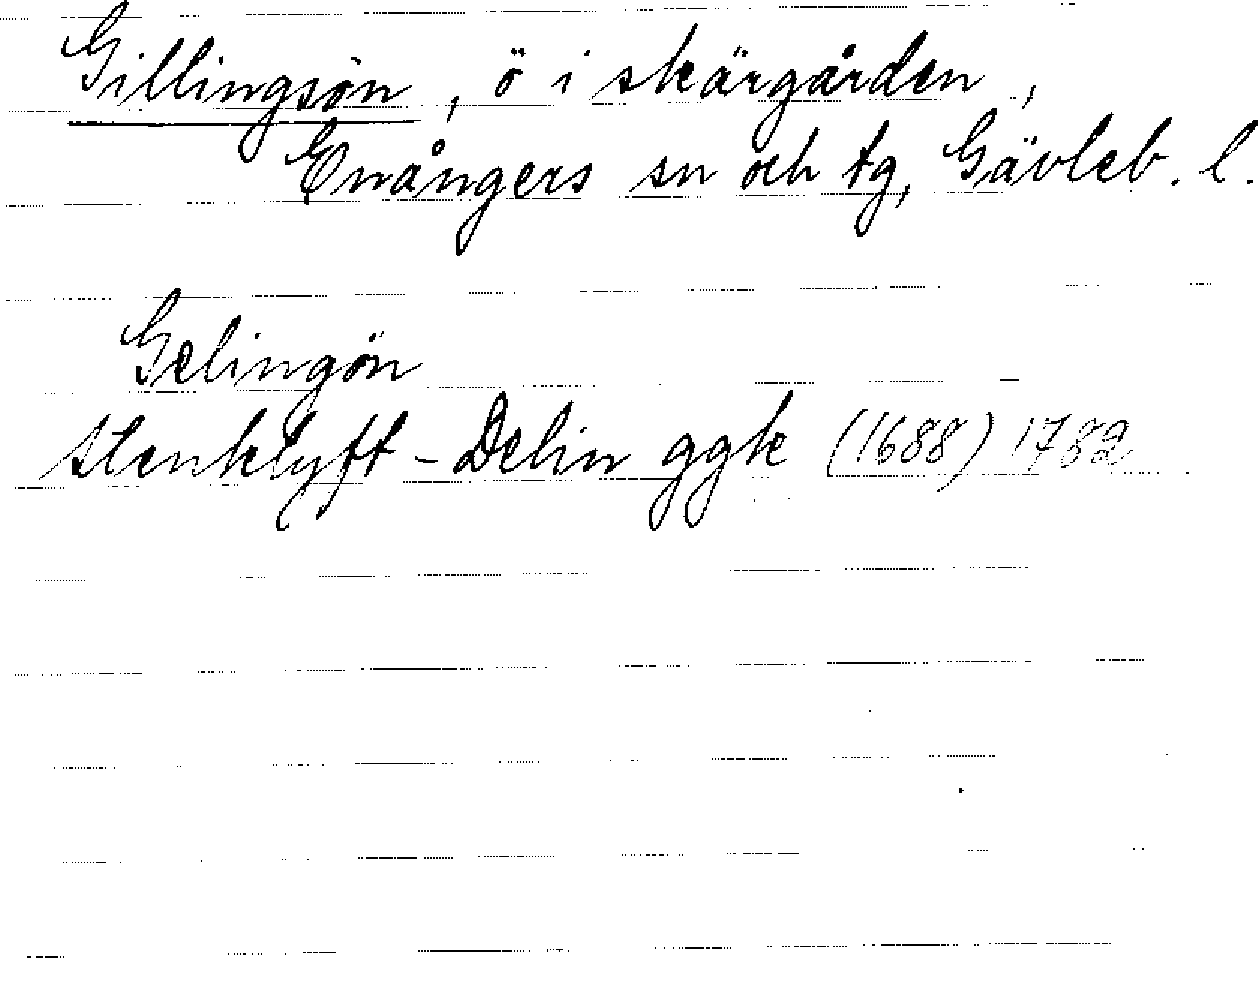 Gillingsön, ö i skärgården,
Enångers sn och tg, Gävleb. l.
Gelingön
Stenklyft - Delin ggk (1688) 1782